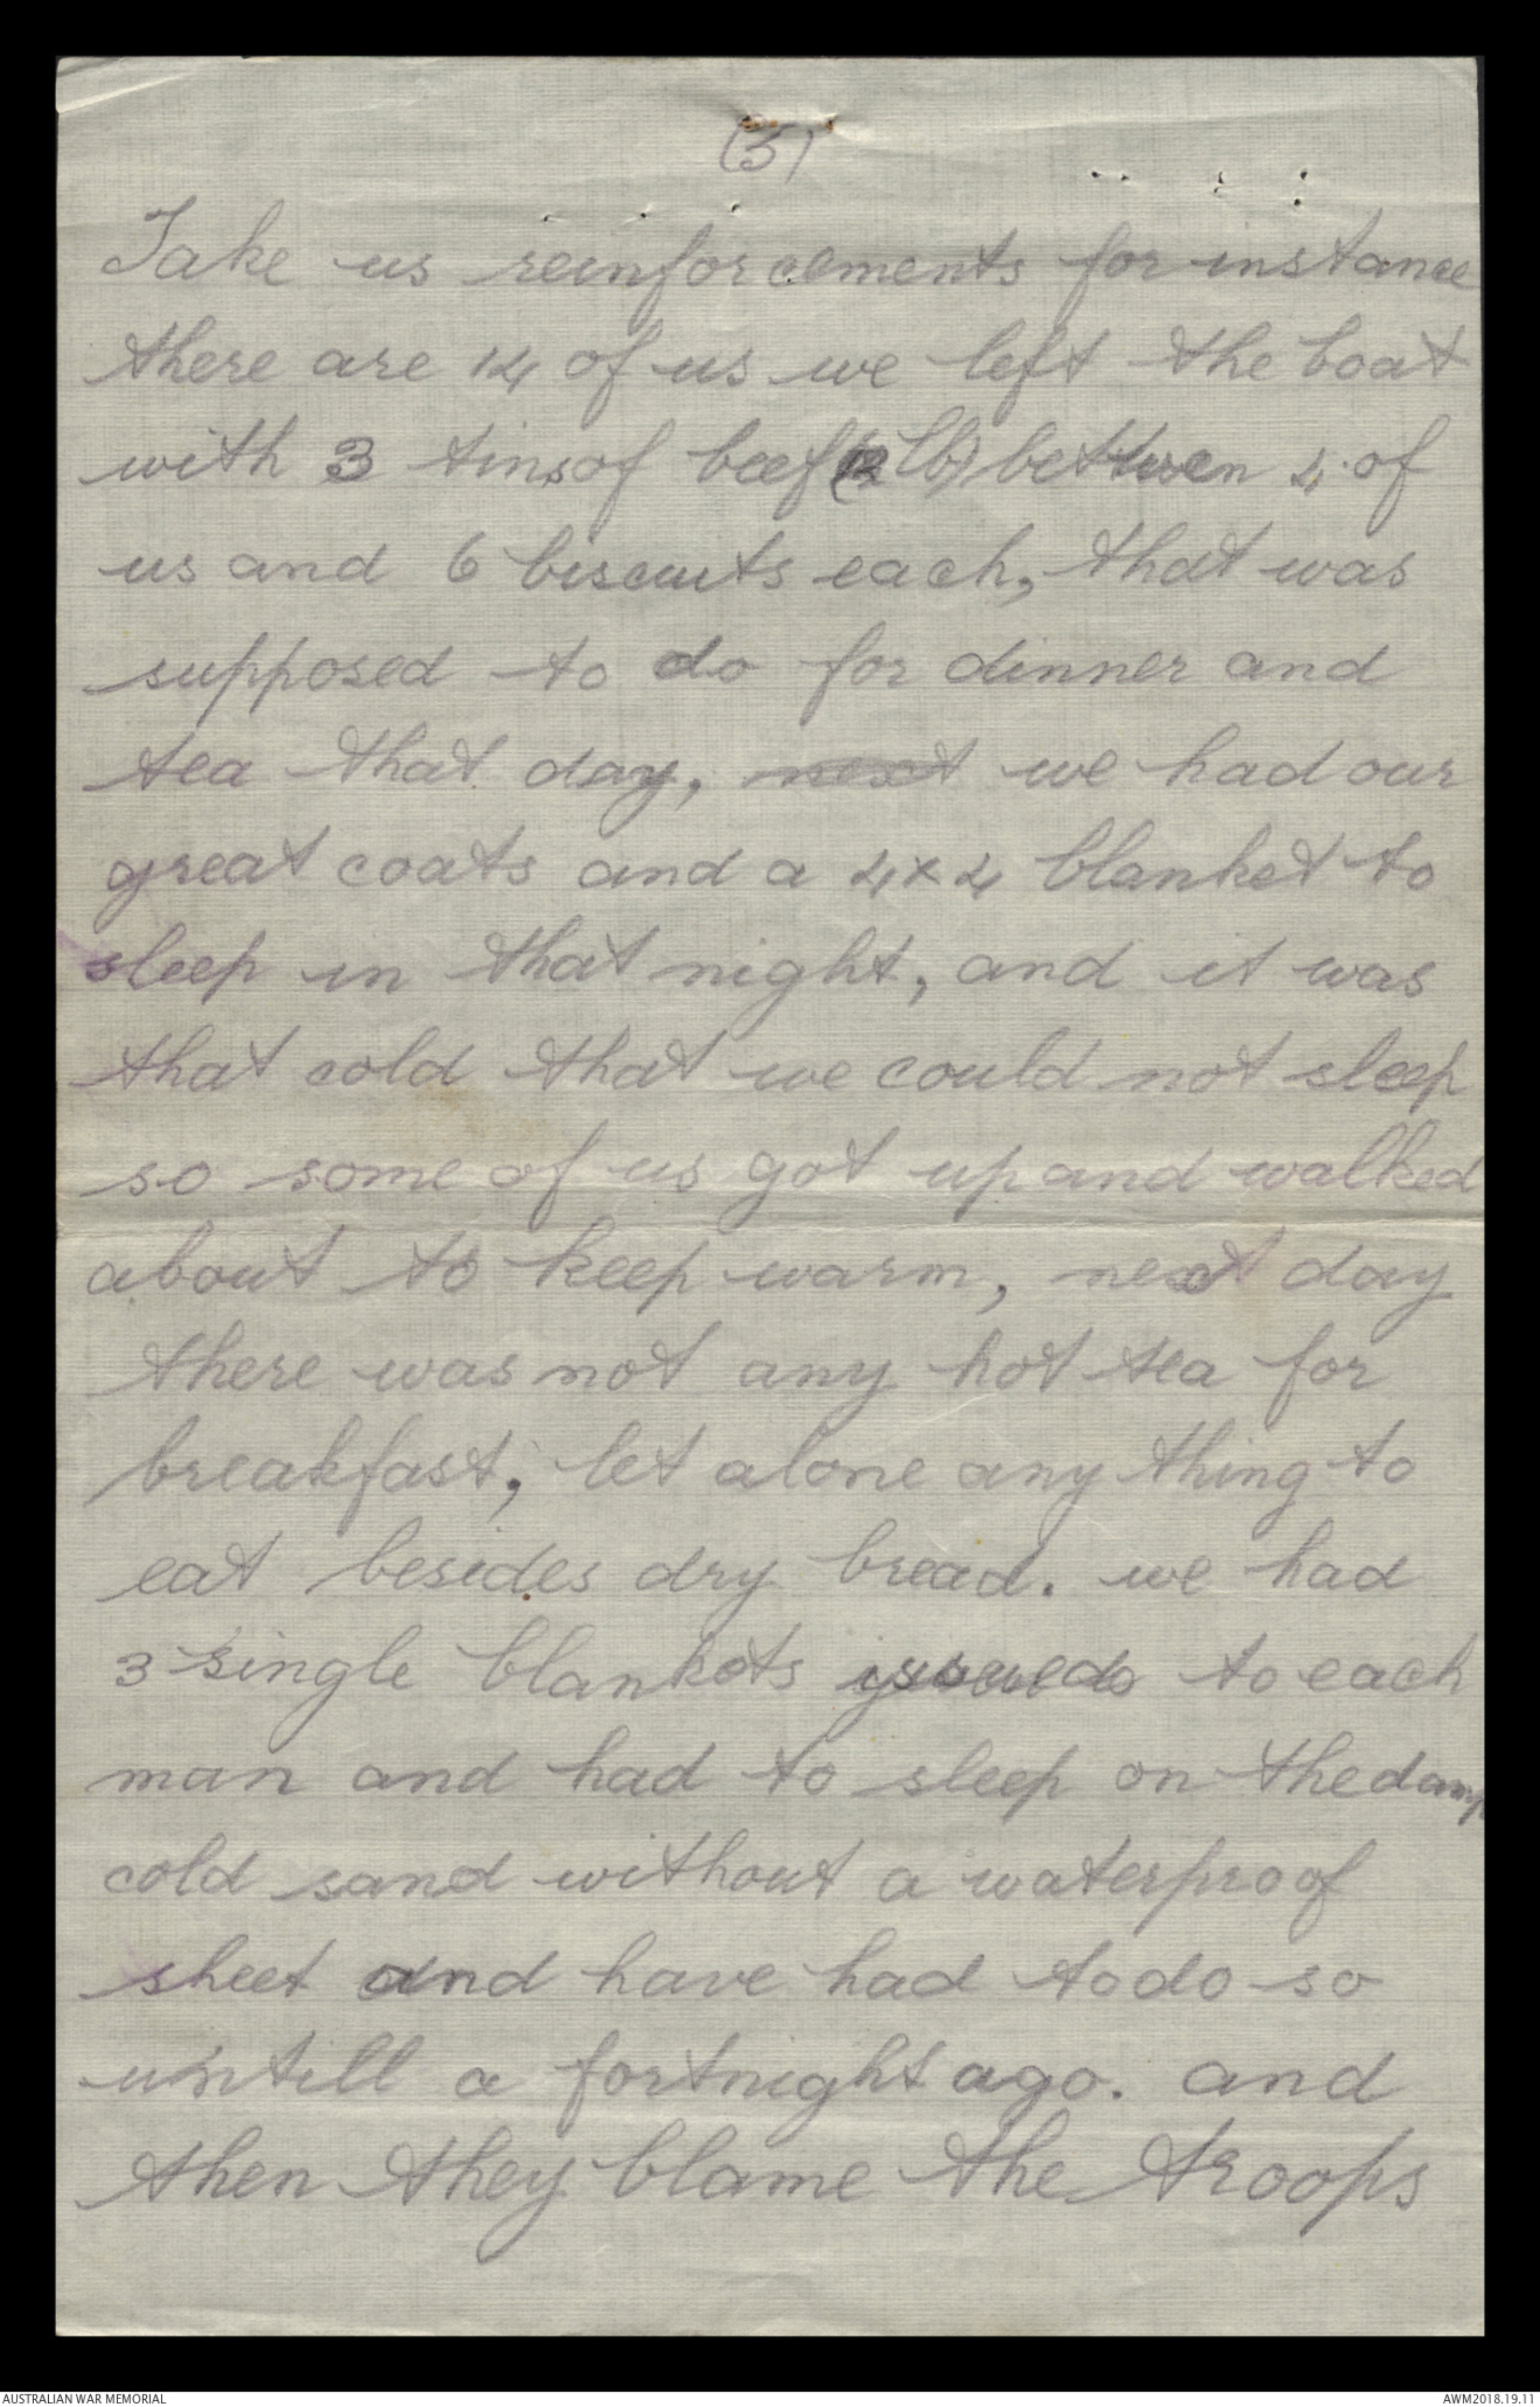 (5)
Take us reinforcements for instance
there are 14 of us we left the boat
with 3 tins of beef ( lb) bettween 4 of
us and 6 biscuits each, that was
supposed to do for dinner and
tea that day, next we had our
great coats and a 4x4 blanket to
sleep in that night, and it was
that cold that we could not sleep
so some of us got up and walked
about to keep warm, next day
there was not any hot tea for
breakfast, let alone any thing to
eat besides dry bread. we had
3 single blankets to each
man and had to sleep on the damp
cold sand without a waterproof
sheet and have had to do so
untill a fortnight ago. and
then they blame the troops
AUSTRALIAN WAR MEMORIAL AWM2018.19.11